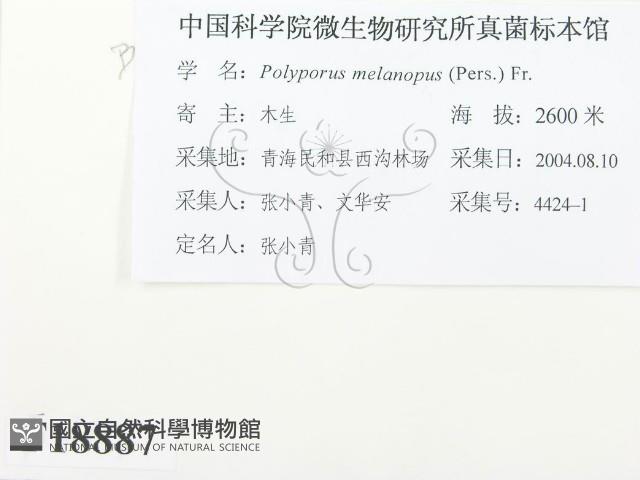 中国科学院微生物研究所真菌标本馆
学 名：Polyporus melanopus (Pers.) Fr.
寄 主：木生 海 拔：2600 米
采集地：青海民和县西沟林场 采集日：2004.08.10
采集人：张小青、文华安 采集号：4424–1
定名人：张小青
國立自然科學博物館
18887
NATIONAL MUSEUM OF NATURAL SCIENCE